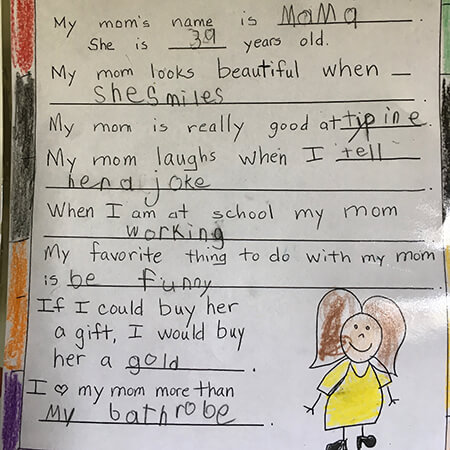 My mom's name is MaMa.
She is 39 years old.
My mom looks beautiful when
she smiles.
My mom is really good at tipine.
My mom laughs when I tell
her a joke.
When I am at school my mom
working.
My favorite thing to do with my mom
is be funny
If I could buy her
a gift, I would buy
her a gold.
I ♡ my mom more than
My bathrobe.